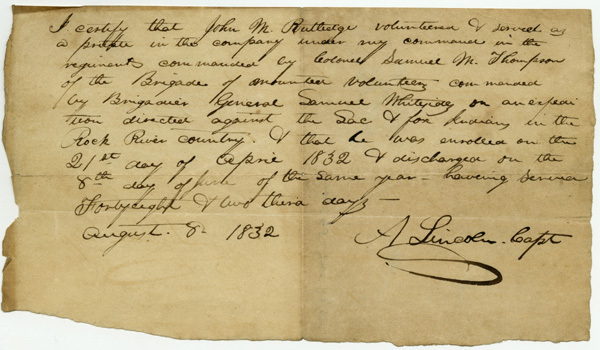 I certify that John M. Rutledge volunteered & served as
a private in the company under my command in the
regiment commanded by Colonel Samuel M. Thompson
of the Brigade of mounted volunteers commanded
by Brigadier General Samuel Whiteside on an expedi
tion directed against the Sac & fox Indians in the
Rock River country. & that he was enrolled on the
21st day of April 1832 & discharged on the
8th day of June of the same year— having served
Fortyeight & two third days—
August. 8. 1832
A Lincoln. Capt